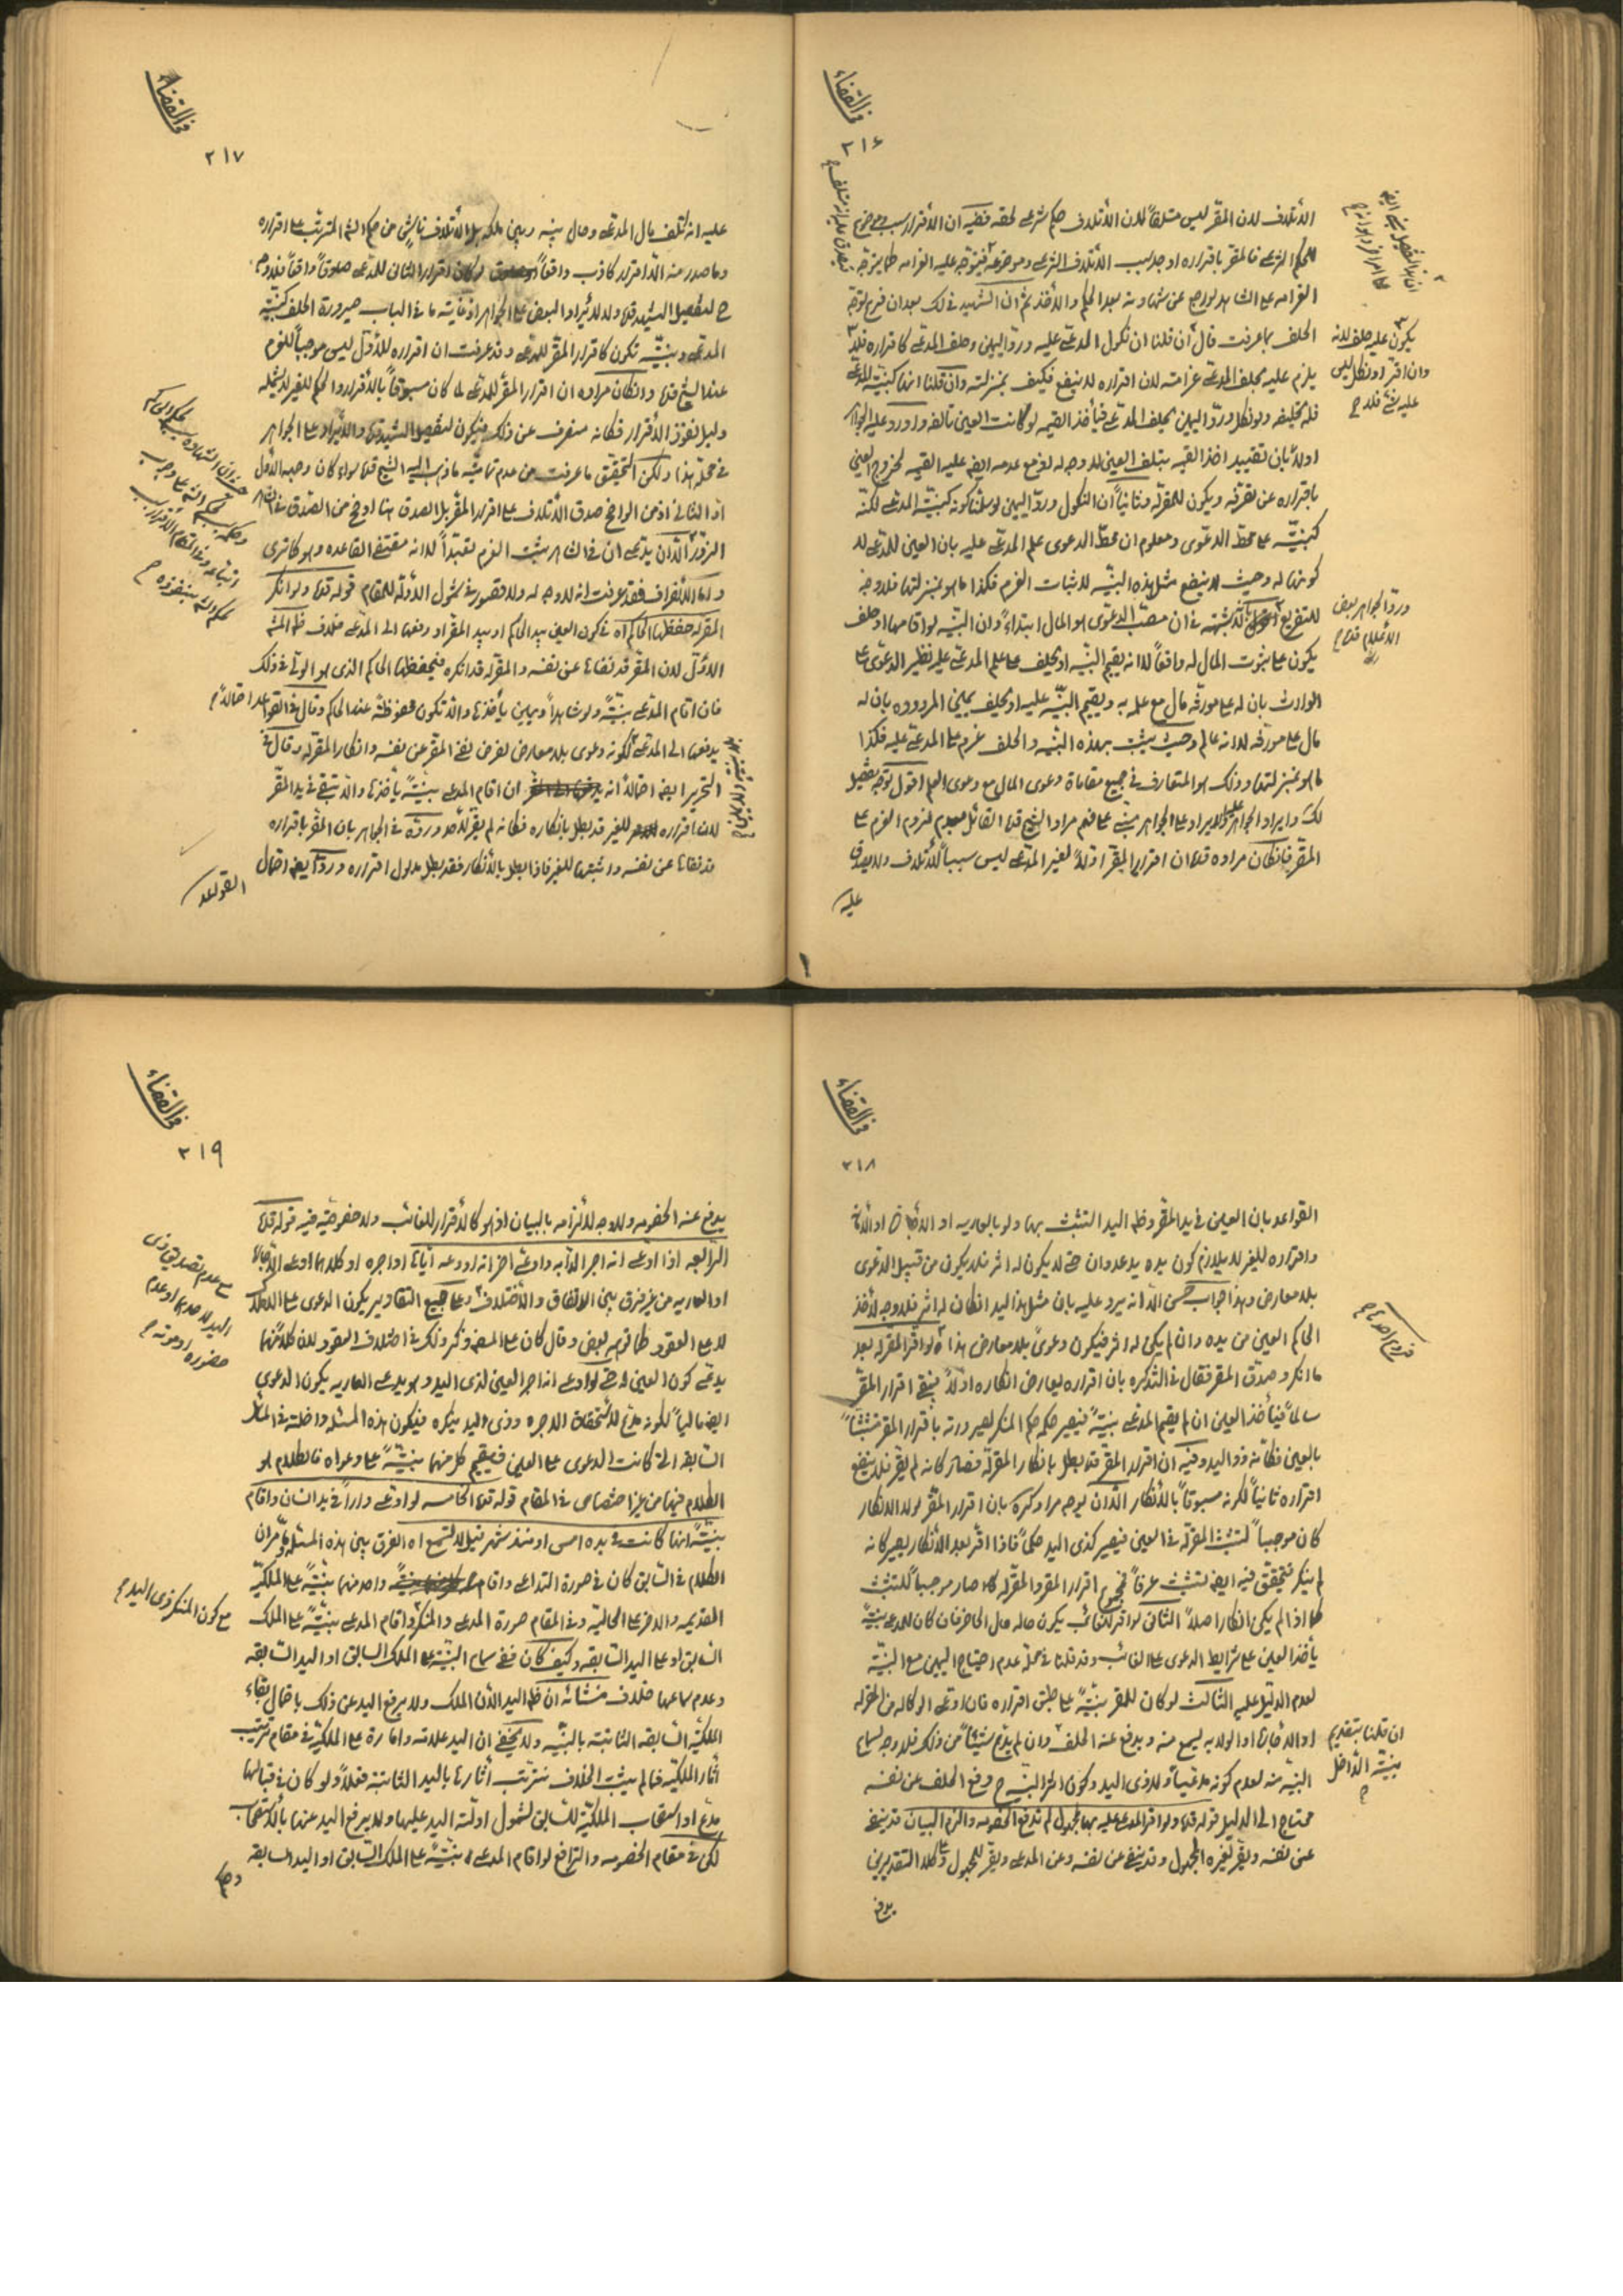 في القضاء
٢١۶
الأتلاف لان المقر ليس متلفاً لان الأتلاف حكم شرعي لحقه قضية ان الأقرار سبب وموضوع
للحكم الشرعي فالمقر باقراره اوجد سبب الأتلاف الشرعي وموضوعه فيتوجه عليه الغرامه كما يتوجه
الغرامه على الشاهد لو رجع عن شهادته بعد الحكم والأخذ ثم ان الشهيد في لك بعد ان فرع توجه
الحلف بما عرفت قال ان قلنا ان نكول المدعى عليه ورد اليمين وحلف المدعى كاقراره فلا
يلزم عليه بحلف المدعي غرامته لان اقراره لا ينفع فكيف بمنزلته وان قلنا انها كبينة المدعي
فله تحليفه ولو نكل ورد اليمين يحلف المدعي فيأخذ القيمه لو كانت العين تالفه واورد عليه الجواهر
اولاً بان تقييد اخذ القيمه بتلف العين لا وجه له لغرم القيمه لخروج العين
باقراره عن تصرفه ويكون للمقر له وثانياً ان النكول ورد اليمين لو سلمنا كونه كبينة المدعي لكنه
كبينته على محط الدعوى ومعلوم ان محط الدعوى علم المدعى عليه بان العين للمدعي لا
كونها له وحيث لا ينفع مثل هذه البينه لاثبات الغرم فكذا ما هو بمنزلتها فلا وجه
للتفريع اقول لا شبهة في ان مصب الدعوى هو المال ابتداءً وان البينه لو اقامها او حلف
يكون على ثبوت المال له واقعاً لا انه يقيم البينه او يحلف على علم المدعى عليه نظير الدعوى على
الوارث بان له على مورثه مال مع علمه به ويقيم البينه عليه او يحلف يمين المردوده بان له
مال على مورثه لا انه عالم وحيث يثبت بهذه البينه والحلف غرم على المدعى عليه فكذا
ما هو بمنزلتها وذلك هو المتعارف في جميع مقامات دعوى المال مع دعوى العلم اقول توجيه تفصيل
لك وايراد الجواهر عليه والايراد على الجواهر يبتنى على فهم مراد الشيخ قده القائل بعدم لزوم الغرم على
المقر فانكان مراده قده ان اقرار المقر اولاً لغير المدعي ليس سبباً للأتلاف ولا يصدق
عليه
يكون عليه حلف لانه
وان اقر او نكل ليس
عليه شئ فلا ح
ورد الجواهر بعض
الأعلام قده
في القضاء
٢١٧
عليه انه اتلف مال المدعي وحال بينه وبين ملكه بل الأتلاف ناشئ من حكم الشرع المترتب على اقراره
وما صدر منه الا اقرار كاذب واقعاً لو كان اقرار الثاني للمدعي صدقاً واقعاً فلا وجه
ح لتفصيل الشهيد قده ولا لايراد البعض على الجواهر اذ غاية ما في الباب صيرورة الحلف كبينة
المدعي وبينته تكون كاقرار المقر للمدعي وقد عرفت ان اقراره للأول ليس موجباً للغرم
عند الشيخ قده وانكان مراده ان اقرار المقر للمدعي لما كان مسبوقاً بالأقرار والحكم للغير لا يشمله
دليل نفوذ الأقرار فكانه منصرف عن ذلك فيكون لتفصيل الشهيد قده والأيراد على الجواهر
في محله هذا ولكن التحقيق ما عرفت من عدم تمامية ما ذهب اليه الشيخ قده سواء كان وجهه الأول
او الثاني اذ من الواضح صدق الأتلاف على اقرار المقر بل الصدق هنا اوضح من الصدق في شاهد
الزور الا ان يدعى ان في الشاهد يثبت الغرم تعبداً لا انه مقتضى القاعده وهو كما ترى
واما الأنصراف فقد عرفت انه لا وجه له ولا قصور في شمول الأدلة للمقام قوله قده ولو انكر
المقر له حفظها الحاكم اه في كون العين بيد الحاكم او بيد المقر او دفعها الى المدعي خلاف ظ المش
الأول لان المقر قد نفاها عن نفسه والمقر له قد انكره فيحفظها الحاكم الذي هو الولي في ذلك
فان اقام المدعي بينةً ولو شاهداً ويمين يأخذها والا تكون محفوظة عند الحاكم وقال في القواعد احتمالاً
يدفعها الى المدعي لكونه دعوى بلا معارض لفرض نفي المقر عن نفسه وانكار المقر له وقال في
التحرير ايضاً احتمالاً انه ان اقام المدعي بينةً يأخذها والا تبقى في يد المقر
لان اقراره للغير قد بطل بانكاره فكانه لم يقر لأحد ورده في الجواهر بان المقر باقراره
قد نفاها عن نفسه واثبتها للغير فاذا بطل بالأنكار فقد بطل مدلول اقراره ورد ايضاً احتمال
القواعد
في القضاء
٢١٨
القواعد بان العين في يد المقر وظ اليد التشبث بها ولو بالعاريه او الأجارة او الأمانة
واقراره للغير لا يلازم كون يده يد عدوان حتى لا يكون له اثر فلا يكون من قبيل الدعوى
بلا معارض وهذا جواب حسن الا انه يرد عليه بان مثل هذا اليد انكان له اثر فلا وجه لأخذ
الحاكم العين من يده وان لم يكن له اثر فيكون دعوى بلا معارض هذا ولو اقر المقر له بعد
ما انكر وصدق المقر فقال في التذكره بان اقراره يعارض انكاره اولاً فيبقى اقرار المقر
سالماً فيأخذ العين ان لم يقيم المدعي بينةً فيصير حكمه حكم المنكر لصيرورته باقرار المقر متشبثاً
بالعين فكانه ذو اليد وفيه ان اقرار المقر قد بطل بانكار المقر له فصار كانه لم يقر فلا ينفع
اقراره ثانياً لكونه مسبوقاً بالأنكار الا ان يوجه مراد كره بان اقرار المقر لولا الانكار
كان موجباً لتشبث المقر له في العين فيصير كذي اليد حكماً فاذا اقر بعد الأنكار يصير كانه
لم ينكر فيتحقق فيه ايضاً تشبث عرفاً فمجموع اقرار المقر والمقر له كما صار موجباً للتشبث
كما اذا لم يكن انكار اصلاً الثاني لو اقر للغائب يكون حاله حال الحاضر فان كان للمدعي بينة
يأخذ العين على شرايط الدعوى على الغائب وقد قلنا في محله عدم احتياج اليمين مع البينة
لعدم الدليل عليه الثالث لو كان للمقر بينةً على طبق اقراره فان ادعى الوكاله من المقر له
او الأجارة او الولايه يسمع منه ويدفع عنه الحلف وان لم يدع شيئاً من ذلك فلا وجه لسماع
البينه منه لعدم كونه مدعياً ولا ذي اليد وكون اثر البينه ح رفع الحلف عن نفسه
محتاج الى الدليل قوله قده ولو اقر المدعى عليه بها لمجهول لم تدفع الخصومه والزم البيان قد ينفي
عن نفسه ويقر لغيره المجهول وقد ينفي عن نفسه وعن المدعي ويقر للمجهول وعلى كلا التقديرين
يدفع
ان قلنا بتقديم
بينة الداخل
ح
في القضاء
٢١٩
يدفع عنه الخصومه ولا وجه لالزامه بالبيان اذ هو كالأقرار للغائب ولا خصوصية فيه قوله قده
الرابعه اذا ادعى انه اجر الدابه وادعى اخر انه اودعه اياها او اجره او كلاهما ادعى الأجارة
او العاريه من غير فرق بين الاتفاق والأختلاف وعلى جميع التقادير يكون الدعوى على الاملاك
لا على العقود كما توهم بعض وقال كان على المصنف ذكر ذلك في اختلاف العقود لان كلاً منهما
يدعي كون العين له حتى لو ادعى انه اجر العين لذي اليد وهو يدعي العاريه يكون الدعوى
ايضاً مالياً لكونه مدع لأستحقاق الاجره وذي اليد ينكره فيكون هذه المسئله داخلة في المسئلة
السابقه التي كانت الدعوى على العين فيقيم كل منهما بينةً على دعواه فالكلام هو
الكلام فيها من غير اختصاص في المقام قوله قده الخامسه لو ادعى داراً في يد انسان واقام
بينةً انها كانت في يده امس او منذ شهر قيل لا تسمع اه الفرق بين هذه المسئله وما مر ان
الكلام في السابق كان في صورة التداعي واقام واحد منهما بينةً على الملكية
القديمه والاخر على الحاليه وفي المقام صورة المدعي والمنكر واقام المدعي بينةً على الملك
السابق او على اليد السابقه وكيف كان ففي سماع البينة على الملك السابق او اليد السابقه
وعدم سماعها خلاف منشائه ان ظ اليد الأن الملك ولا يرفع اليد عن ذلك باحتمال بقاء
الملكية السابقه الثابتة بالبينه ولا يخفى ان اليد علامته وامارة على الملكية في مقام ترتيب
آثار الملكية فما لم يثبت الخلاف نترتب آثارها باليد الثابتة فعلاً ولو كان في قبالها
مدع او استصحاب الملكية للسابق لشمول ادلة اليد عليها ولا يرفع اليد عنها بالأستصحاب
لكن في مقام الخصومه والترافع لو اقام المدعي بينةً على الملك السابق او اليد السابقه
مع عدم تصديق ذي
اليد لاحدهما او عدم
حضوره او موته ح
مع كون المنكر ذي اليد ح